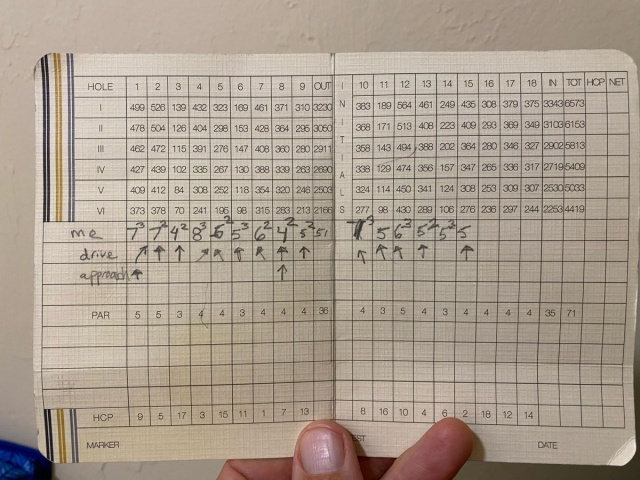 HOLE 1 2 3 4 5 6 7 8 9 OUT INITIALS 10 11 12 13 14 15 16 17 18 IN TOT HCP NET
I 499 526 139 432 323 169 461 371 310 3230 383 189 564 461 249 435 308 379 375 3343 6573
II 478 504 126 404 298 153 428 364 295 3050 368 171 513 408 223 409 293 369 349 3103 6153
III 462 472 115 391 276 147 408 360 280 2911 358 143 494 388 202 364 280 346 327 2902 5813
IV 427 439 102 335 267 130 388 339 263 2690 338 129 474 356 157 347 265 336 317 2719 5409
V 409 412 84 308 252 118 354 320 246 2503 324 114 450 341 124 308 253 309 307 2530 5033
VI 373 378 70 241 195 98 315 283 213 2166 277 98 430 289 106 276 236 297 244 2253 4419
me 7³ 7² 4² 8³ 6² 5³ 6² 4² 5² 51 7³ 5 6³ 5² 5³ 5
drive ↗ ↑ ↑ ↗ ↖ ↖ ↖ ↑ ↑ ↖ ↖ ↖ ↑ ↑
approach ↑ ↑
PAR 5 5 3 4 4 3 4 4 4 36 4 3 5 4 3 4 4 4 4 35 71
HCP 9 5 17 3 15 11 1 7 13 8 16 10 4 6 2 18 12 14
MARKER DATE